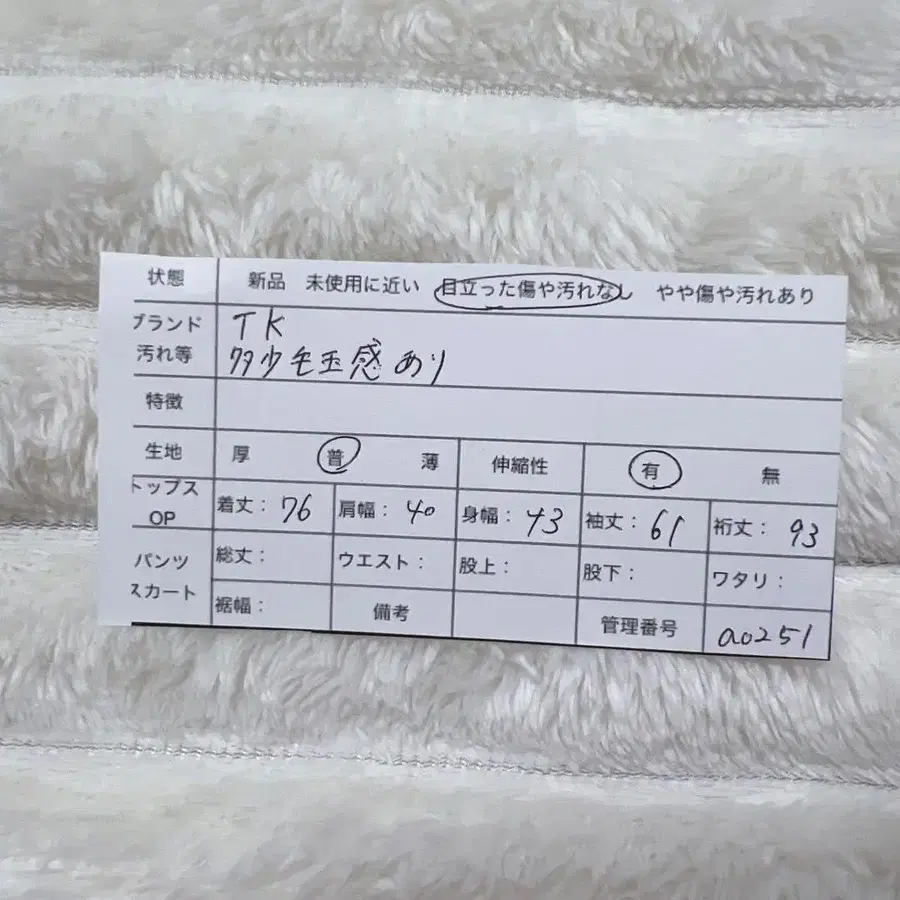 状態 新品 未使用に近い 目立った傷や汚れなし やや傷や汚れあり
ブランド TK
汚れ等 多少毛玉感あり
特徴
生地 厚 普 薄 伸縮性 有 無
トップス OP 着丈：76 肩幅：40 身幅：43 袖丈：61 裄丈：93
パンツ スカート 総丈： ウエスト： 股上： 股下： ワタリ：
裾幅： 備考 管理番号 a0251